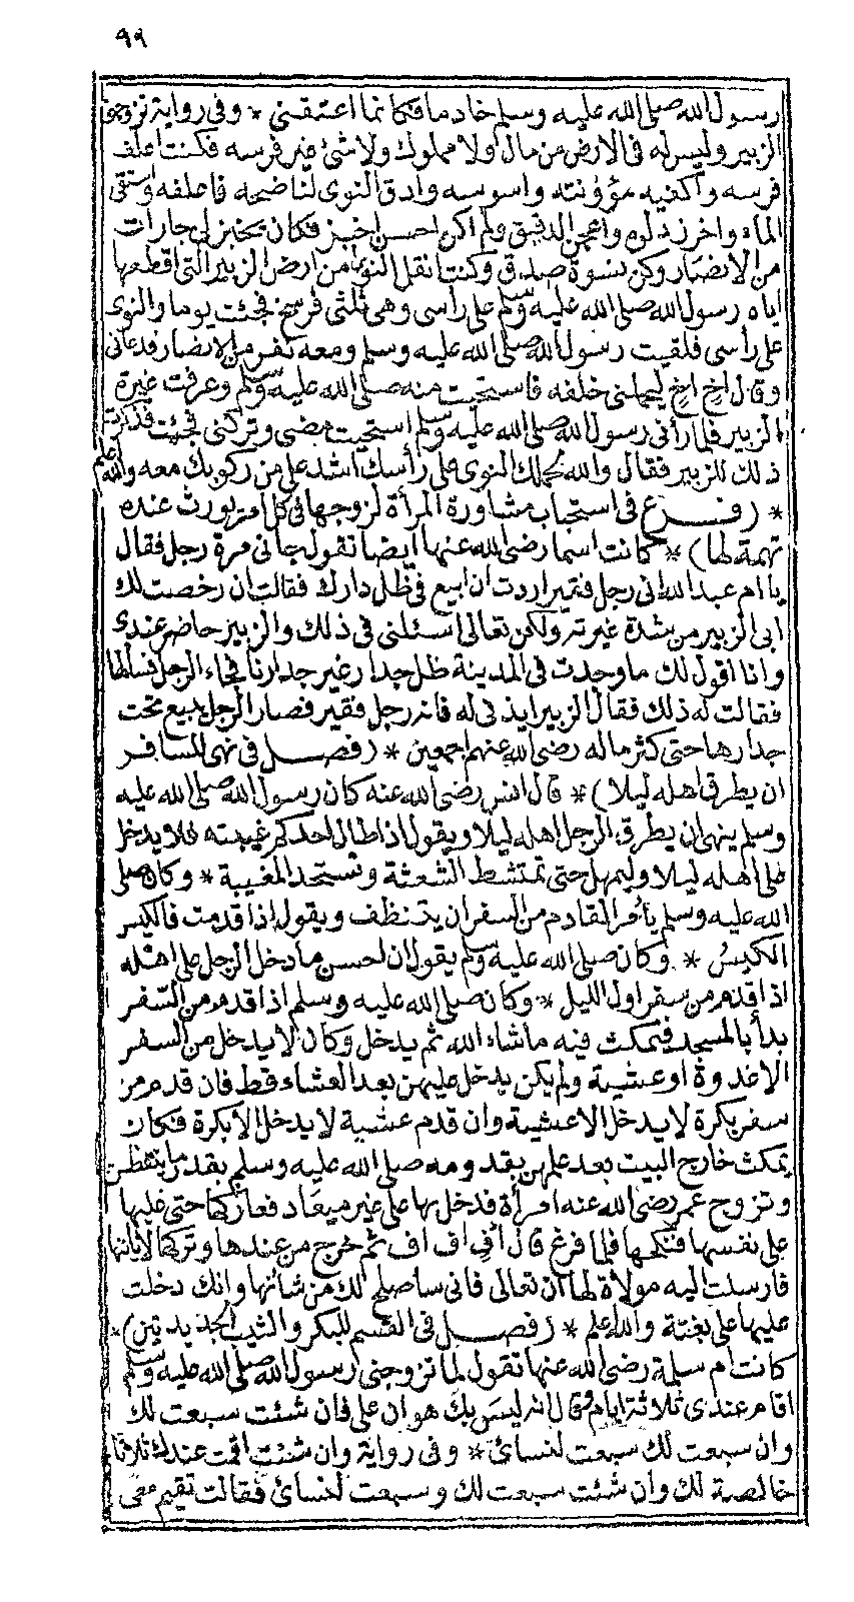 ٩٩
رسول الله صلى الله عليه وسلم خادما فكانما اعتقنى * وفى رواية تزوجنى
الزبير وليس له فى الارض من مال ولا مملوك ولا شئ غير فرسه فكنت اعلف
فرسه واكفيه مؤونته واسوسه وادق النوى لناضحه فاعلفه واستقى
الماء واخرز دلوه واعجن الدقيق ولم اكن احسن اخبز فكان يخبز لى جارات
من الانصار وكن نسوة صدق وكنت انقل النوى من ارض الزبير التى اقطعها
اياه رسول الله صلى الله عليه وسلم على رأسى وهى ثلثى فرسخ فجئت يوما والنوى
على رأسى فلقيت رسول الله صلى الله عليه وسلم ومعه نفر من الانصار فدعانى
وقال اخ اخ ليحملنى خلفه فاستحيت منه صلى الله عليه وسلم وعرفت غيرة
الزبير فلما رأنى رسول الله صلى الله عليه وسلم استحيت مضى وتركنى فجئت فذكرت
ذلك للزبير فقال والله لحملك النوى على رأسك اشد على من ركوبك معه والله اعلم
* (فرع فى استحباب مشاورة المرأة لزوجها فى كل امر يورث عنده
تهمة لها) * كانت اسما رضى الله عنها ايضا تقول جانى مرة رجل فقال
يا ام عبد الله انى رجل فقير اردت ان ابيع فى ظل دارك فقالت ان رخصت لك
ابى الزبير من شدة غيرته ولكن تعالى اسئلنى فى ذلك والزبير حاضر عندى
وانا اقول لك ما وجدت فى المدينة ظل جدار غير جدارنا فجاء الرجل فسألها
فقالت له ذلك فقال الزبير ايذنى له فانه رجل فقير فصار الرجل يبيع تحت
جدارها حتى كثر ماله رضى الله عنهم اجمعين * (فصل فى نهى المسافر
ان يطرق اهله ليلا) * قال انس رضى الله عنه كان رسول الله صلى الله عليه
وسلم ينهى ان يطرق الرجل اهله ليلا ويقول اذا طال احدكم غيبته فلا يدخل
على اهله ليلا وليمهل حتى تمتشط الشعثة وتستحد المغيبة * وكان صلى
الله عليه وسلم يأمر القادم من السفر ان يتنظف ويقول اذا قدمت فالكيس
الكيس * وكان صلى الله عليه وسلم يقول ان احسن ما دخل الرجل على اهله
اذا قدم من سفر اول الليل * وكان صلى الله عليه وسلم اذا قدم من السفر
بدأ بالمسجد فيمكث فيه ما شاء الله ثم يدخل وكان لا يدخل من السفر
الا غدوة او عشية ولم يكن يدخل عليهن بعد العشاء قط فان قدم من
سفر بكرة لا يدخل الا عشية وان قدم عشية لا يدخل الا بكرة فكان
يمكث خارج البيت بعد علمهن بقدومه صلى الله عليه وسلم بقدر ما يتنظفن
وتزوج عمر رضى الله عنه امرأة فدخل بها على غير ميعاد فعاركها حتى غلبها
على نفسها فنكحها فلما فرغ قال اف اف اف ثم خرج من عندها وتركها لا يأتيها
فارسلت اليه مولاة لها ان تعالى فانى ساصلح لك من شانها وانك دخلت
عليها على بغتة والله اعلم * (فصل فى القسم للبكر والثيب الجديدتين) *
كانت ام سلمة رضى الله عنها تقول لما تزوجنى رسول الله صلى الله عليه وسلم
اقام عندى ثلاثة ايام وقال انه ليس بك هوان على فان شئت سبعت لك
وان سبعت لك سبعت لنسائى * وفى رواية وان شئت اقمت عندك ثلاثا
خالصة لك وان شئت سبعت لك وسبعت لنسائى فقالت تقيم معى